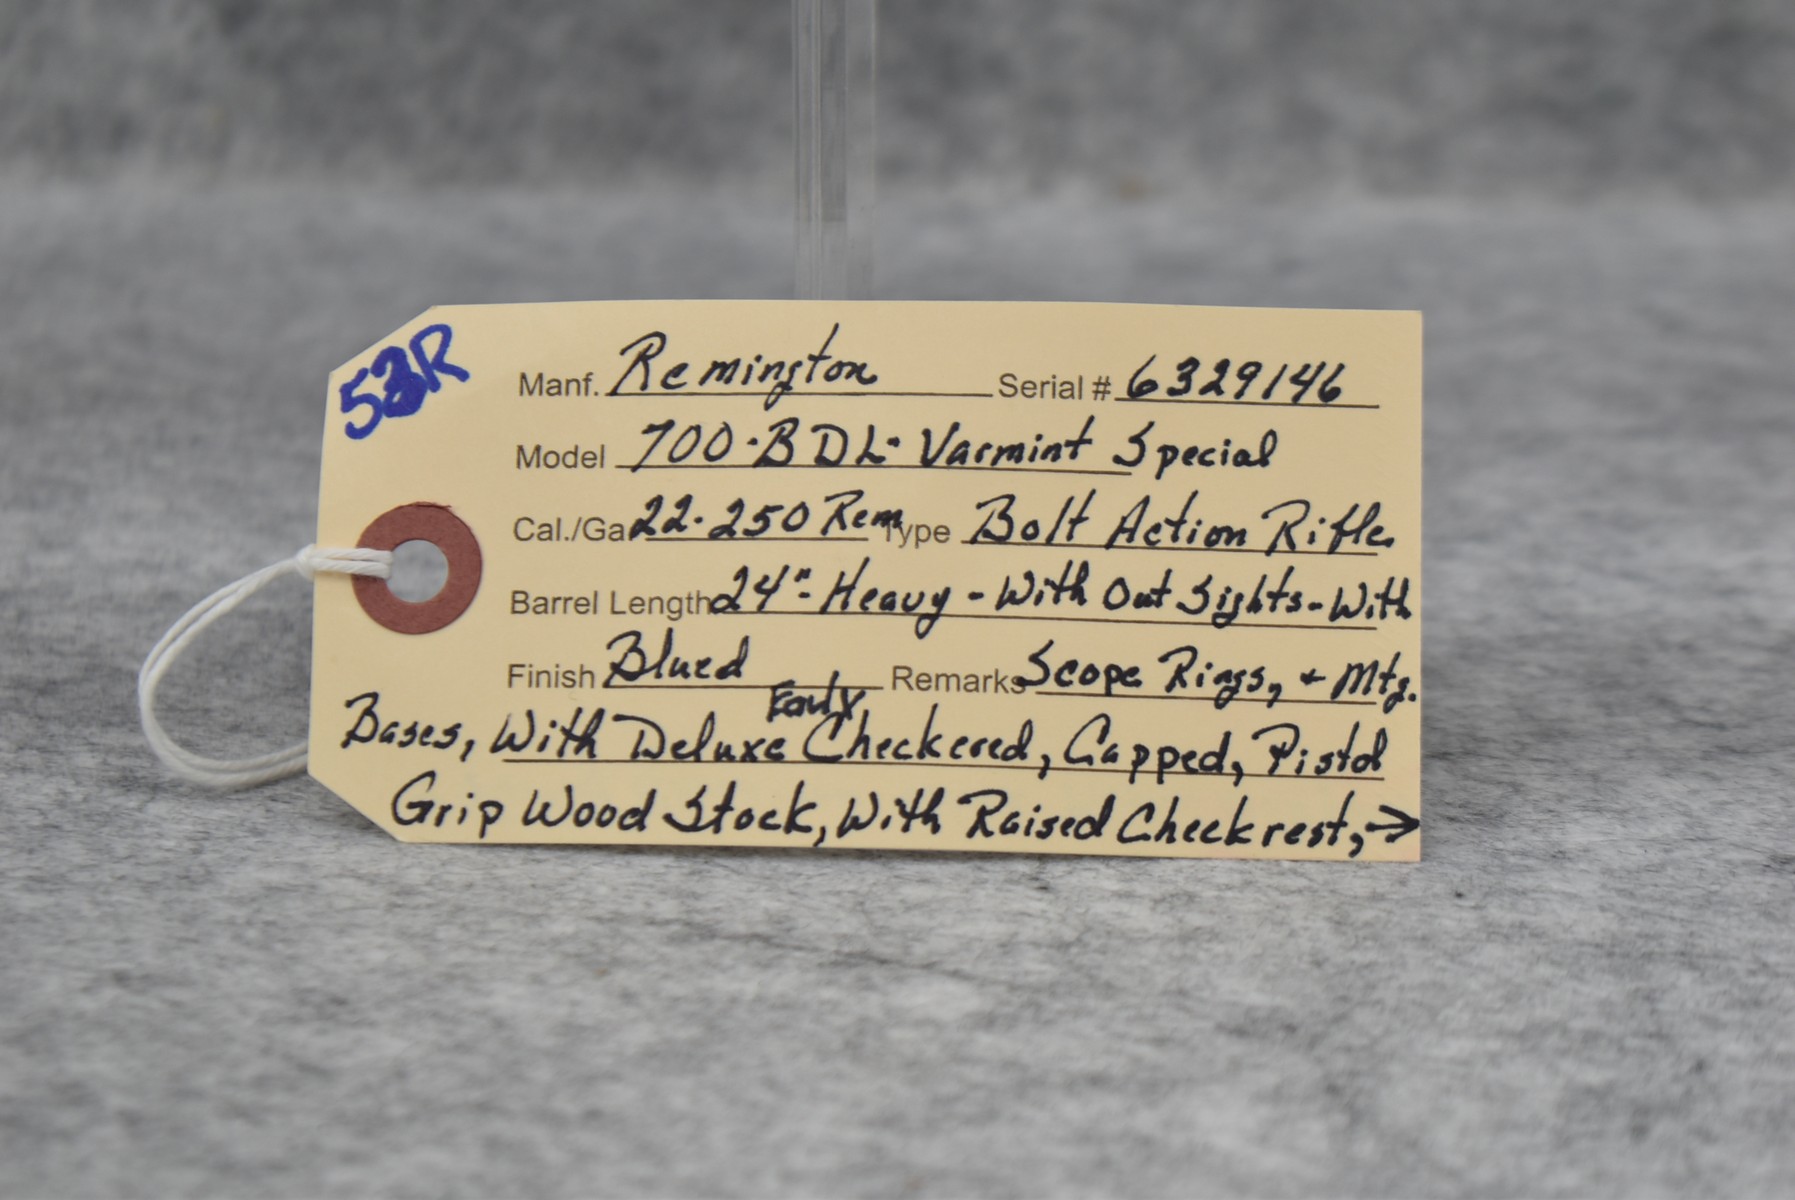 53R
Manf. Remington Serial # 6329146
Model 700-BDL- Varmint Special
Cal./Ga 22-250 Rem Type Bolt Action Rifle
Barrel Length 24"- Heavy - With Out Sights - With
Finish Blued Remarks Scope Rings, + Mtg.
Facty
Bases, With Deluxe Checkered, Capped, Pistol
Grip Wood Stock, With Raised Cheekrest, →